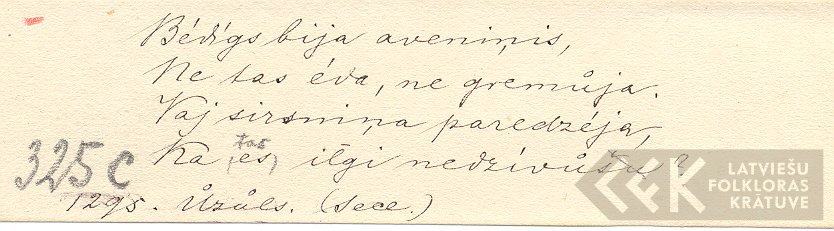 Bēdīgs bija aveniņis,
Ne tas ēda, ne gremůja.
Vaj sirsniņa paredzēja,
tas
Ka (es) ilgi nedzīvůšu?
325 c
1295. Ůzůls. (Sece.)
LFK
LATVIEŠU
FOLKLORAS
KRĀTUVE